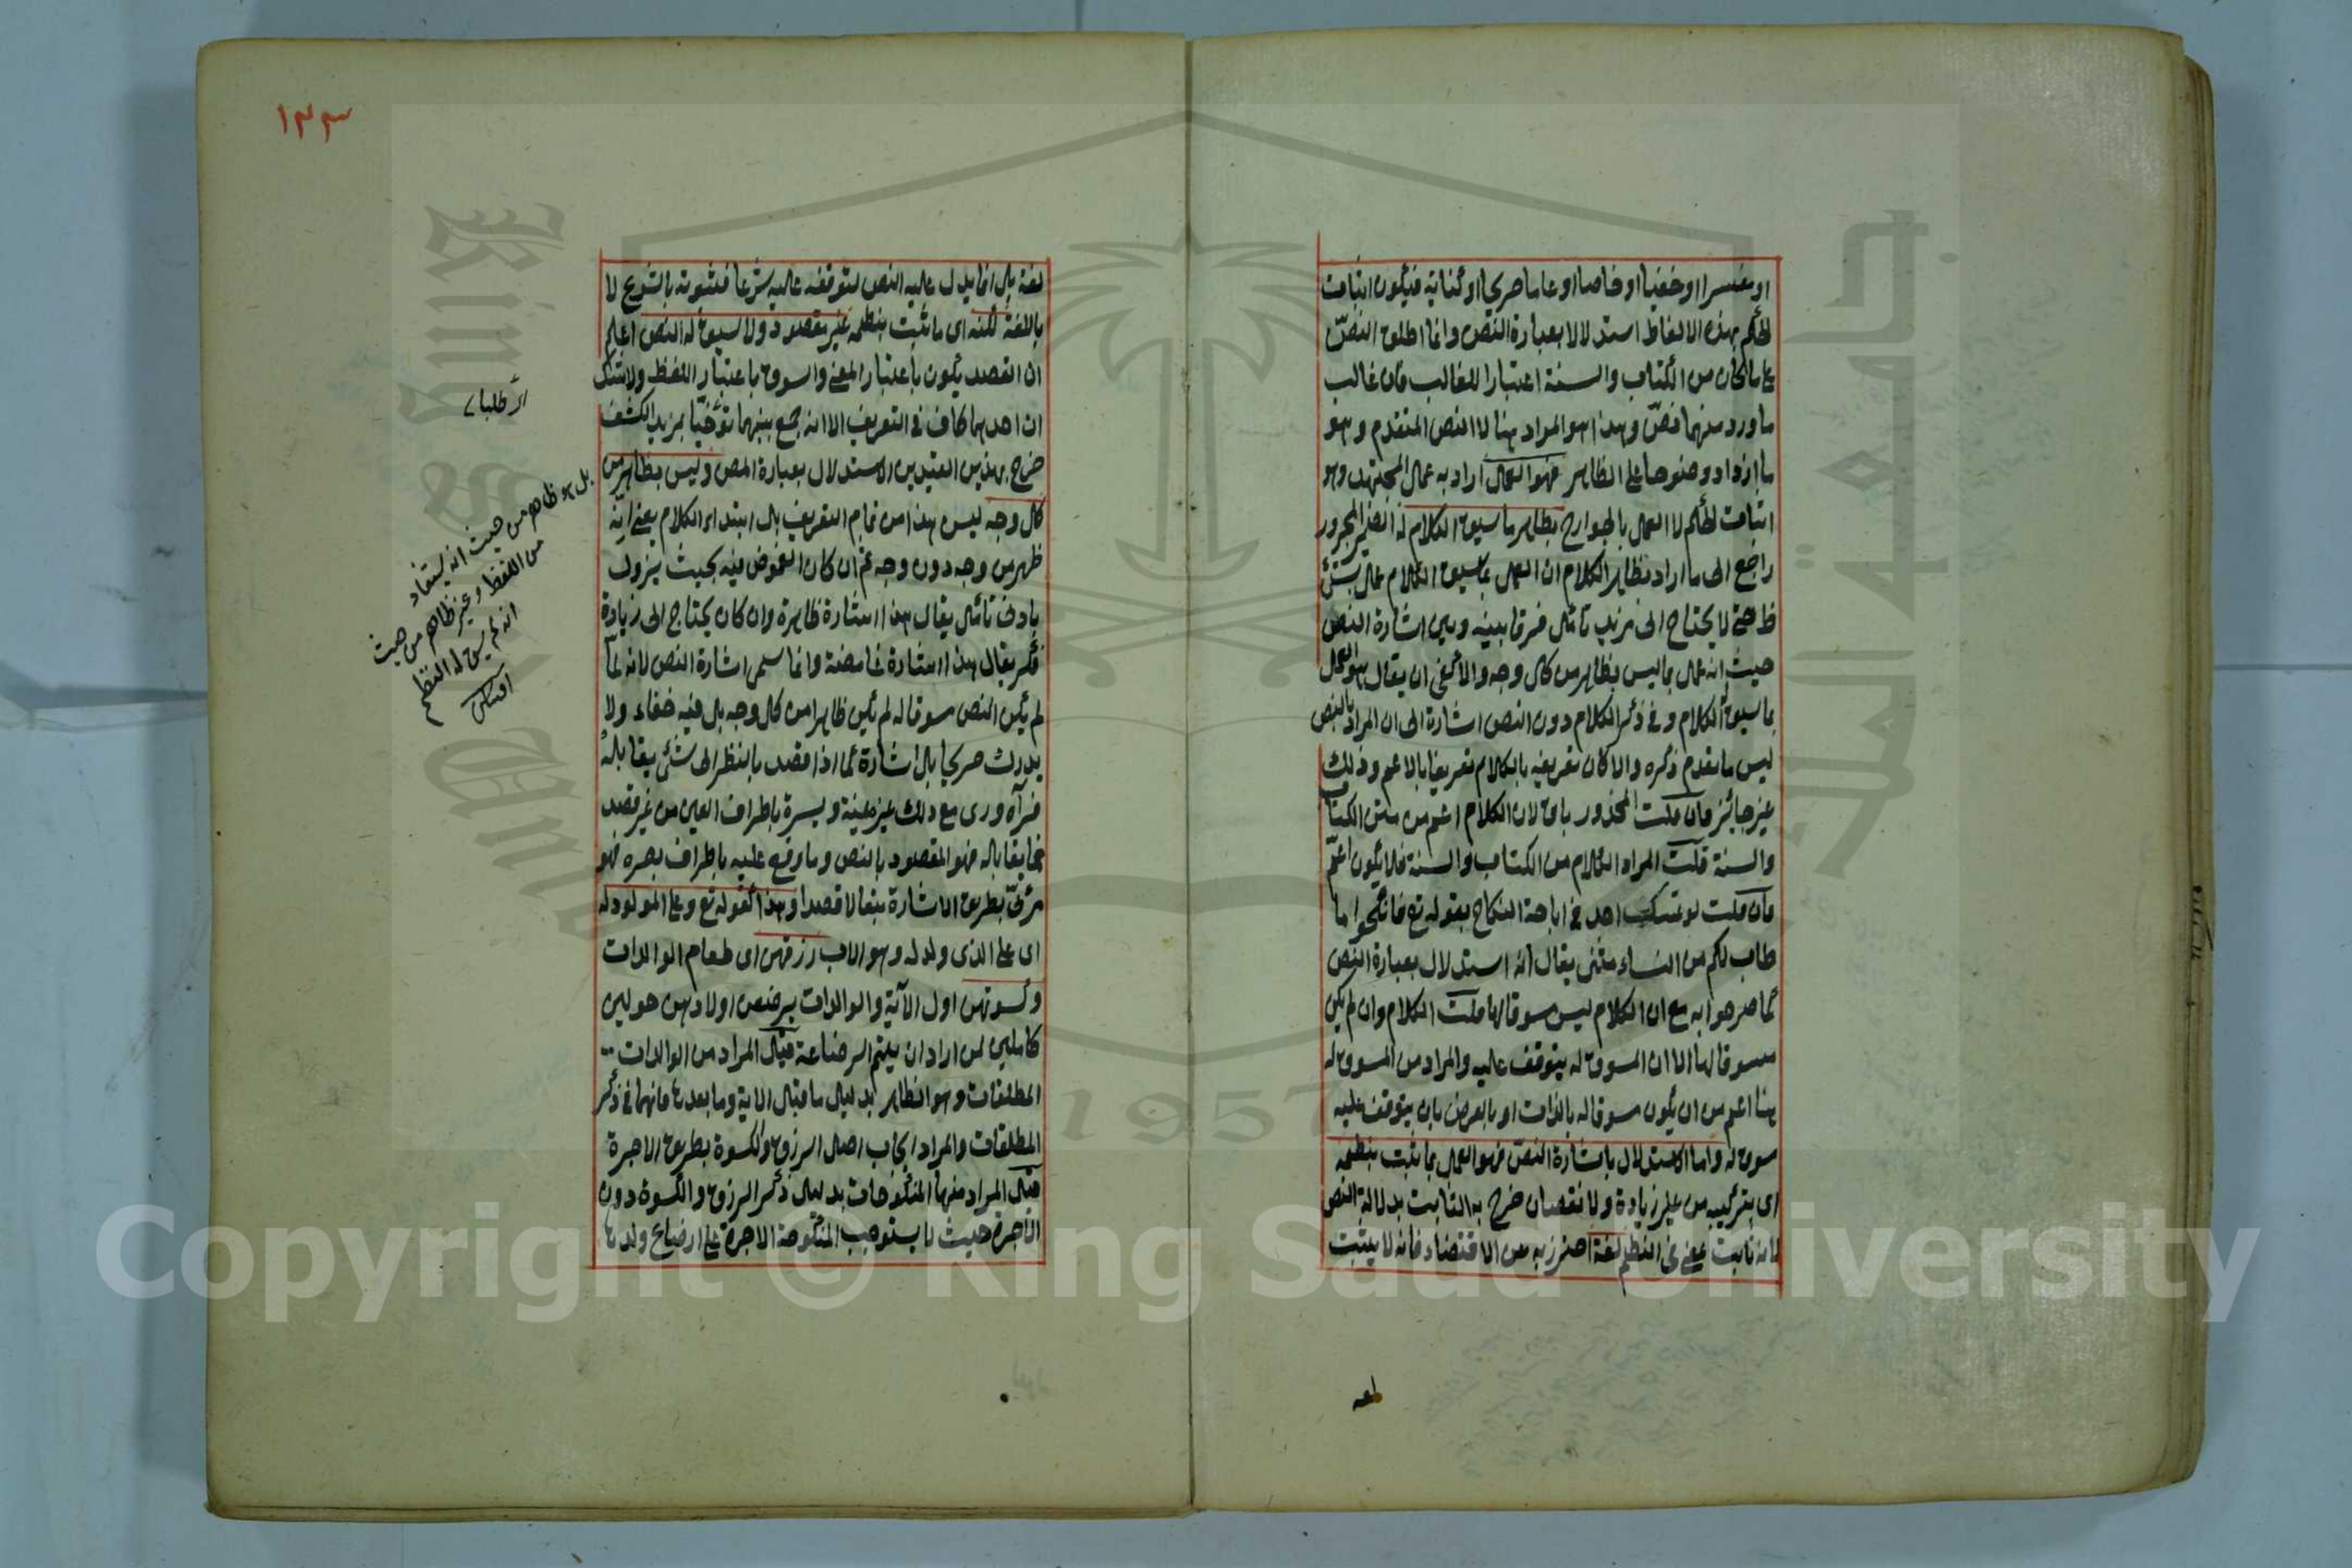 او مفسرا او خفيا او خاصا او عاما او صريحا او كناية فيكون اثبات
الحكم بهذه الالفاظ استدلالا بعبارة النص وانما اطلق النص
على ما كان من الكتاب والسنة اعتبارا للغالب فان غالب
ما ورد منهما نص وهذا هو المراد هنا لا النص المتقدم وهو
ما ازداد وضوحا على الظاهر فهو العمل اراد به عمل المجتهد وهو
اثبات الحكم لا العمل بالجوارح بظاهر ما سيق الكلام له الضمير المجرور
راجع الى ما اراد بظاهر الكلام ان العمل بما سيق الكلام عمل بشئ
ظ حتى لا يحتاج الى مزيد تأمل فرقا بينه وبين اشارة النص
حيث انه عمل بما ليس بظاهر من كل وجه والا كفى ان يقال هو العمل
بما سيق الكلام وفى ذكر الكلام دون النص اشارة الى ان المراد بالنص
ليس ما تقدم ذكره والا كان تعريفه بالكلام تعريفا بالاعم وذلك
غير جائز فان قلت المحذور باق لان الكلام اعم من متن الكتاب
والسنة قلت المراد الكلام من الكتاب والسنة فلا يكون اعم
فان قلت لو تمسك احد فى اباحة النكاح بقوله تع فانكحوا ما
طاب لكم من النساء مثنى يقال انه استدلال بعبارة النص
كما صرحوا به مع ان الكلام ليس مسوقا لها قلت الكلام وان لم يكن
مسوقا لها الا ان المسوق له يتوقف عليه والمراد من المسوق له
هنا اعم من ان يكون مسوقا له بالذات او بالعرض بان يتوقف عليه
سوق له واما الاستدلال باشارة النص فهو العمل بما ثبت بنظمه
اى بتركيبه من غير زيادة ولا نقصان خرج به الثابت بدلالة النص
لانه ثابت بمعنى النظم لغة احترز به عن الاقتضاء فانه لا يثبت
لعه
١٣٣
لغة بل انما يدل عليه النص لتوقفه عليه شرعا فثبوته بالشرع لا
باللغة لكنه اى ما ثبت بنظمه غير مقصود ولا سيق له النص اعلم
ان القصد يكون باعتبار المعنى والسوق باعتبار اللفظ ولا شك
ان احدهما كاف فى التعريف الا انه جمع بينهما توخيا بمزيد الكشف
خرج بهذين القيدين الاستدلال بعبارة النص وليس بظاهر من
كل وجه ليس هذا من تمام التعريف بل ابتداء الكلام يعنى انه
ظهر من وجه دون وجه ثم ان كان الغموض فيه بحيث يزول
بادنى تأمل يقال هذا اشارة ظاهرة وان كان يحتاج الى زيادة
فكر يقال هذا اشارة غامضة وانما سمى اشارة النص لانه لما
لم يكن النص مسوقا له لم يكن ظاهرا من كل وجه بل فيه خفاء ولا
يدرك صريحا بل اشارة كما اذا قصد بالنظر الى شئ يقابله
فرآه ورى مع ذلك غيره يمنة ويسرة باطراف العين من غير قصد
فما يقابله فهو المقصود بالنص وما وقع عليه باطراف بصره فهو
مرئى بطريق الاشارة تبعا لا قصدا وهذا كقوله تع وعلى المولود له
اى على الذى ولد له وهو الاب رزقهن اى طعام الوالدات
وكسوتهن اول الآية والوالدات يرضعن اولادهن حولين
كاملين لمن اراد ان يتم الرضاعة قيل المراد من الوالدات
المطلقات وهو الظاهر بدليل ما قبل الاية وما بعدها فانهما فى ذكر
المطلقات والمراد ايجاب اصل الرزق والكسوة بطريق الاجرة
قيل المراد منها المنكوحات بدليل ذكر الرزق والكسوة دون
الاجرة حيث لا يستوجب المنكوحة الاجرة على ارضاع ولدها
اى طلبا
بل هو ظاهر من حيث انه يستفاد
من اللفظ وغير ظاهر من حيث
انه لم يسق له النظم
Copyright © King Saud University
1957